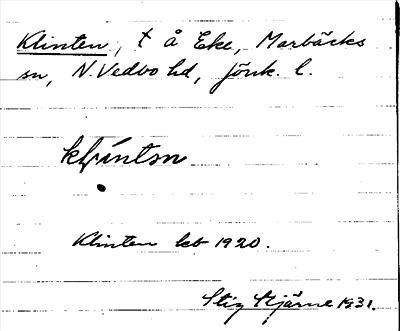 Klinten, t å Eke, Marbäcks
sn, N. Vedbo hd, Jönk. l.
Klinten kb 1920.
Stig Hjärne 1931.